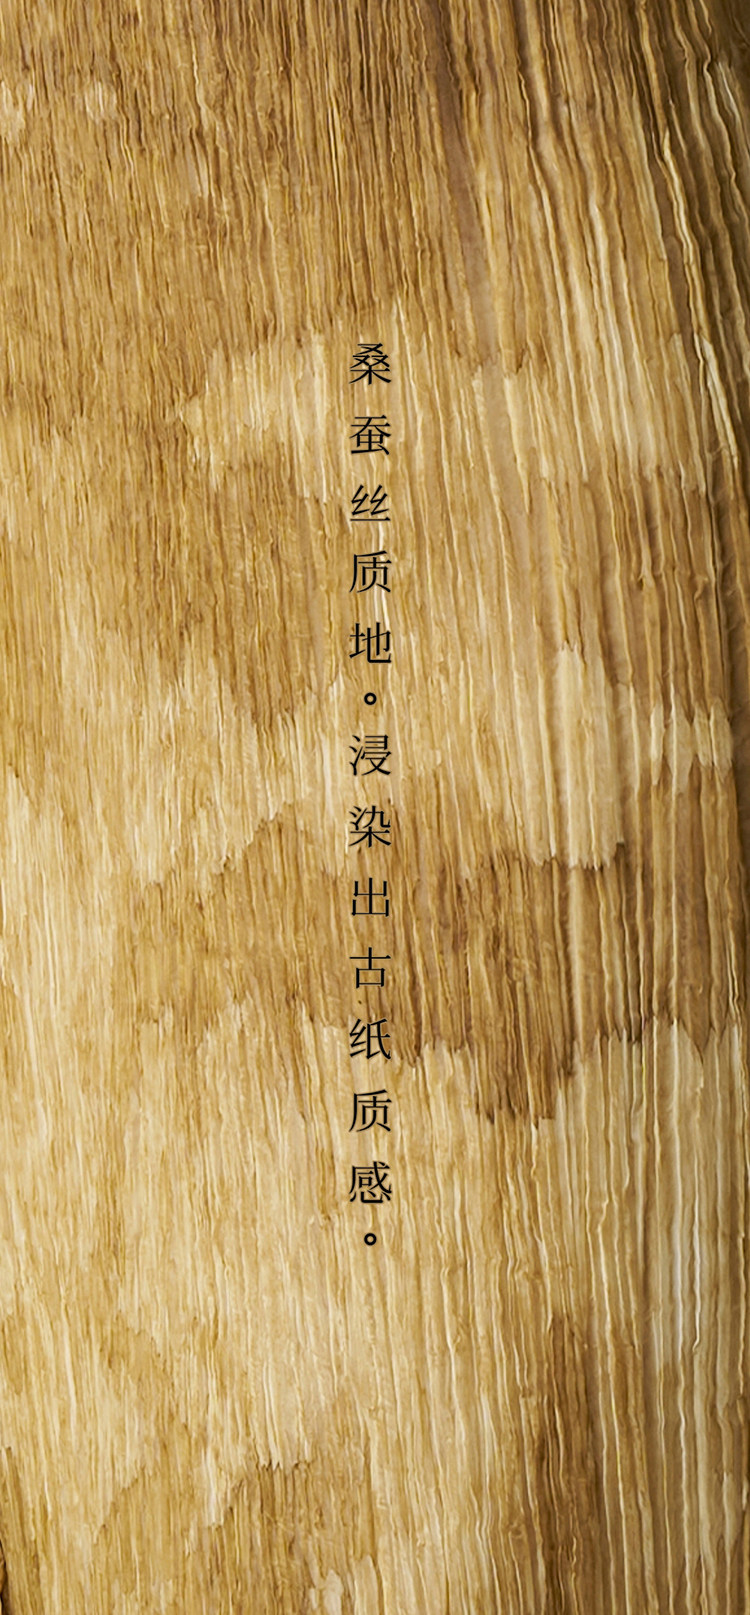 桑蚕丝质地。浸染出古纸质感。